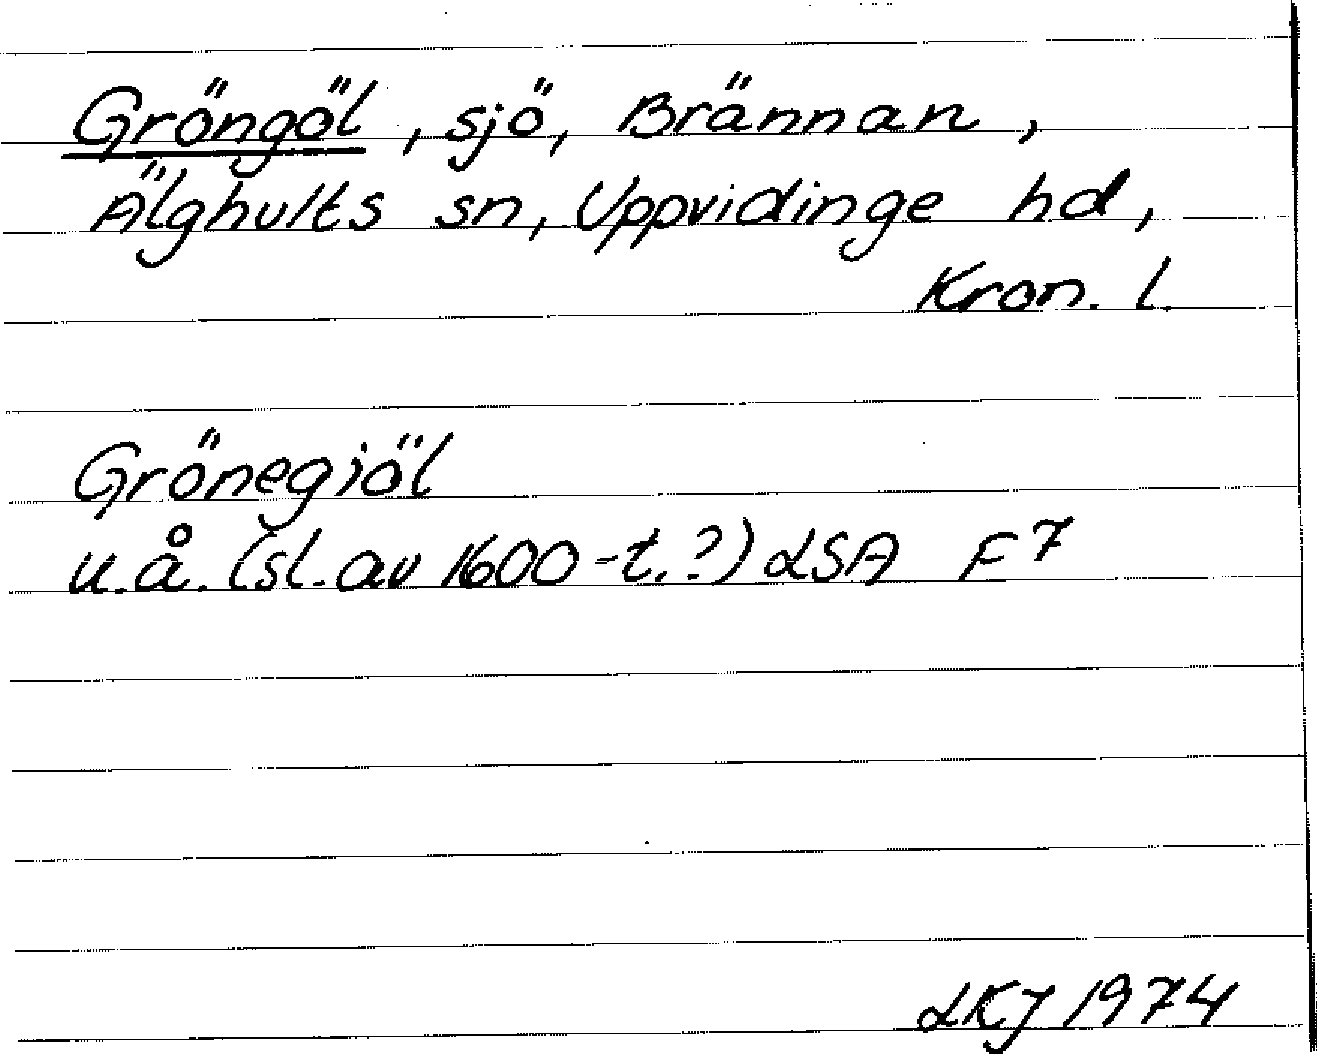 Gröngöl, sjö, Brännan,
Älghults sn, Uppvidinge hd,
Kron. l.
Grönegiöl
u.å. (sl. av 1600-t.?) LSA F7
LKJ 1974